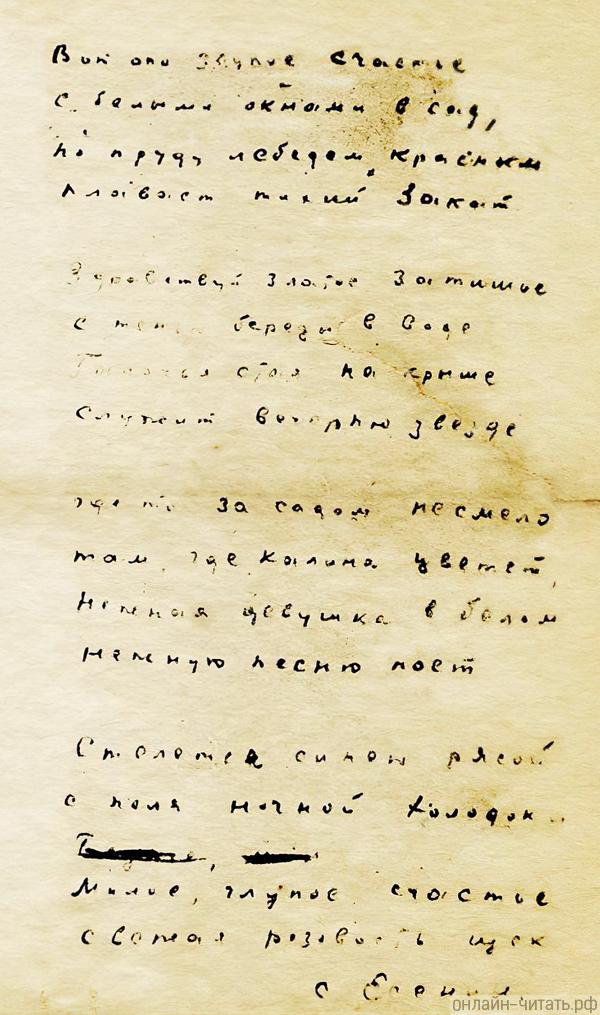 Вот оно глупое счастье
с белыми окнами в сад,
по пруду лебедем красным
плавает тихий закат

Здравствуй златое затишье
с тенью березы в воде
Галочья стая на крыше
служит вечерню звезде

где то за садом несмело
там, где калина цветет,
нежная девушка в белом
нежную песню поет

Стелется синею рясой
с поля ночной холодок.
Милое, глупое счастье
свежая розовость щек
С Есенин.
онлайн-читать.рф